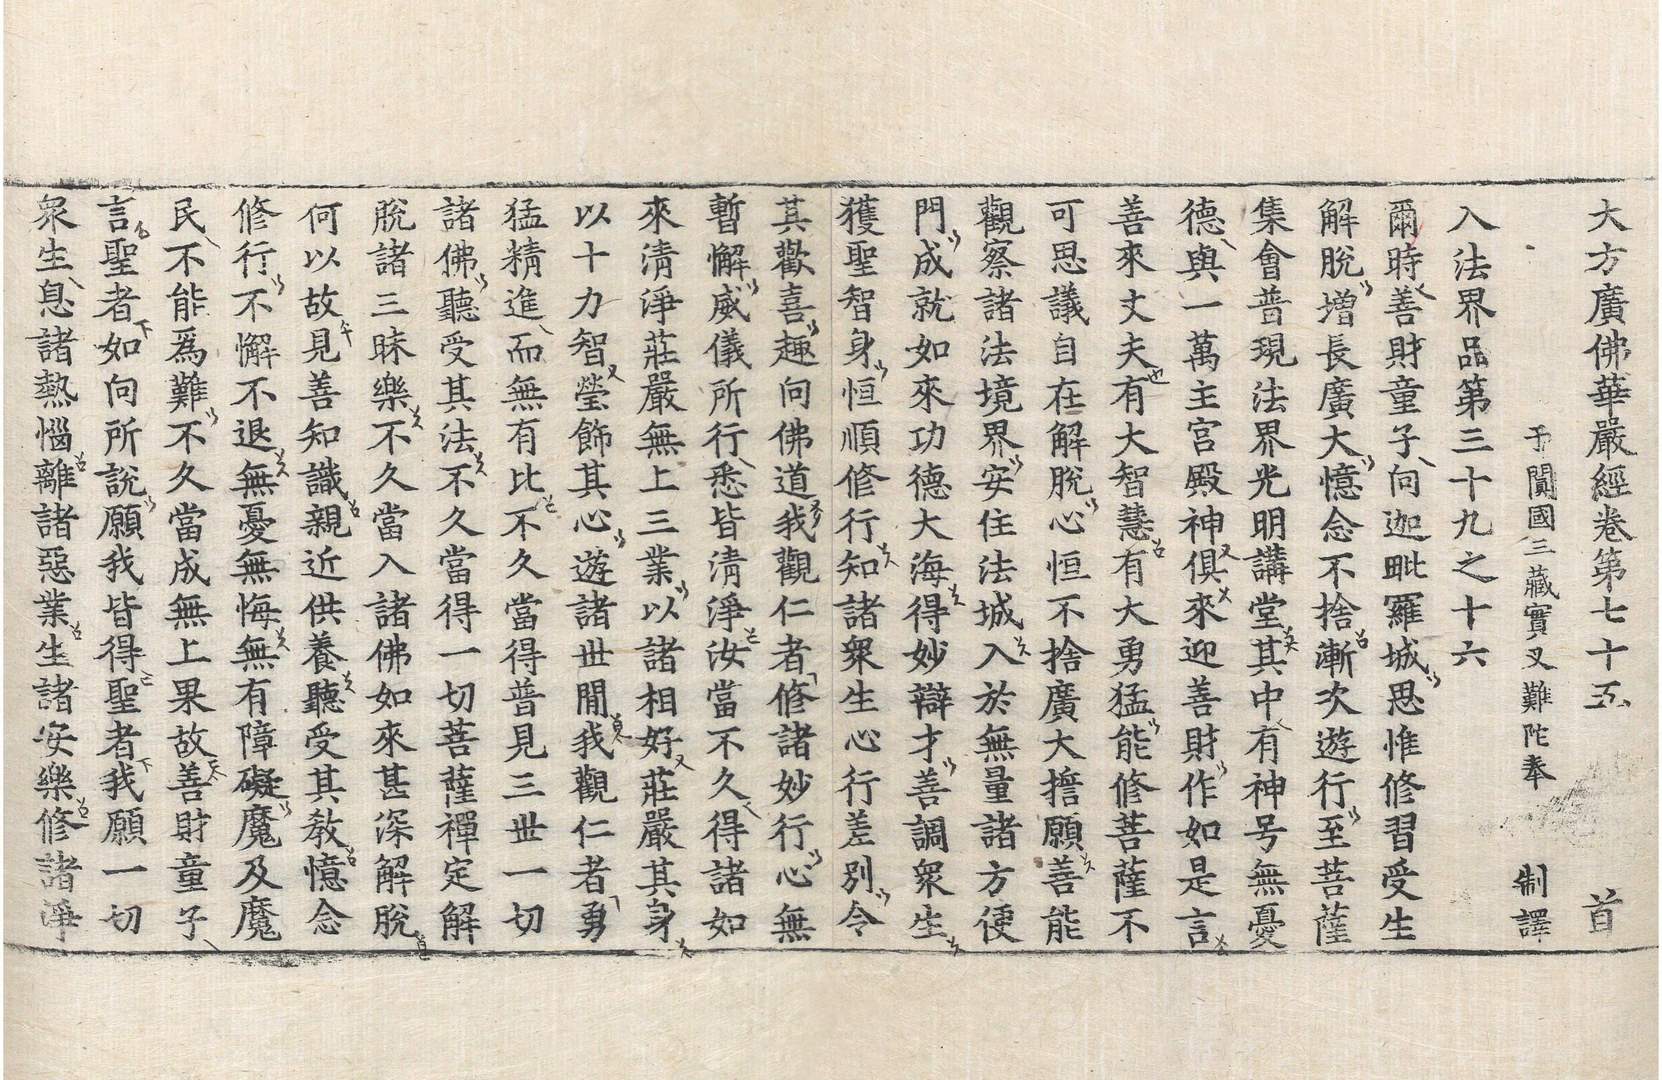 大方廣佛華嚴經卷第七十五　首
于闐國三藏實叉難陀奉　制譯
入法界品第三十九之十六
爾時善財童子向迦毗羅城思惟修習受生
解脫增長廣大憶念不捨漸次遊行至菩薩
集會普現法界光明講堂其中有神号無憂
德與一萬主宮殿神俱來迎善財作如是言
善來丈夫有大智慧有大勇猛能修菩薩不
可思議自在解脫心恒不捨廣大擔願善能
觀察諸法境界安住法城入於無量諸方便
門成就如來功德大海得妙辯才善調衆生
獲聖智身恒順修行知諸衆生心行差別令
其歡喜趣向佛道我觀仁者修諸妙行心無
暫懈威儀所行悉皆清淨汝當不久得諸如
來清淨莊嚴無上三業以諸相好莊嚴其身
以十力智瑩飾其心遊諸世間我觀仁者勇
猛精進而無有比不久當得普見三世一切
諸佛聽受其法不久當得一切菩薩禪定解
脫諸三昧樂不久當入諸佛如來甚深解脫
何以故見善知識親近供養聽受其教憶念
修行不懈不退無憂無悔無有障礙魔及魔
民不能爲難不久當成無上果故善財童子
言聖者如向所說願我皆得聖者我願一切
衆生息諸熱惱離諸惡業生諸安樂修諸淨